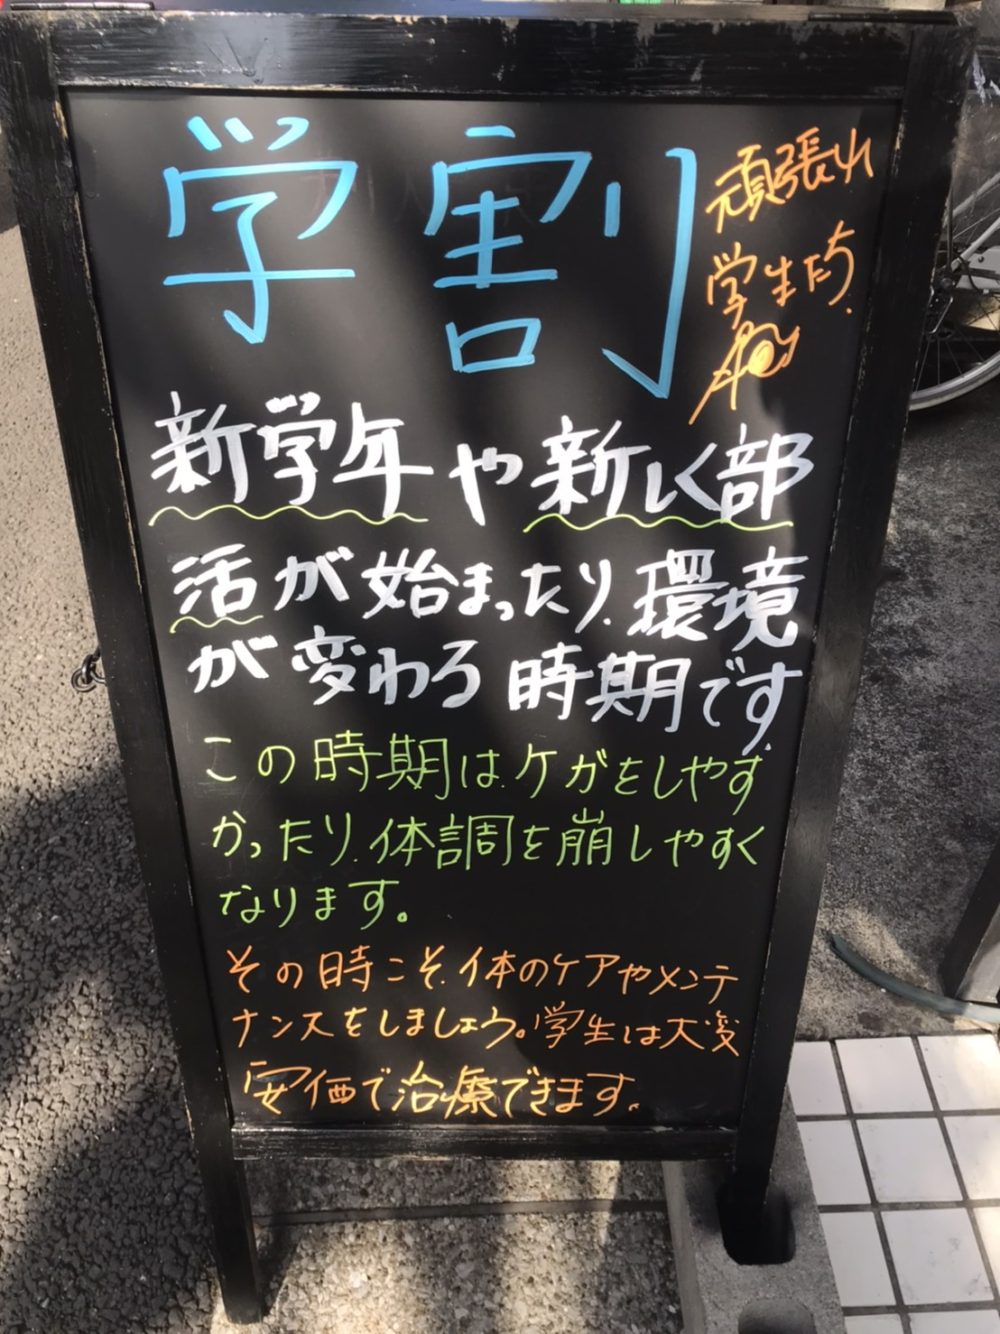 学割
頑張れ
学生たち
新学年や新しく部
活が始まったり、環境
が変わる時期です
この時期は、ケガをしやす
かったり、体調を崩しやすく
なります。
その時こそ、体のケアやメンテ
ナンスをしましょう。学生は大変
安価で治療できます。